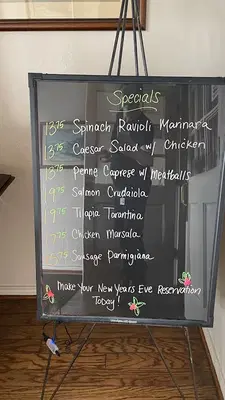 Specials
13.75 Spinach Ravioli Marinara
13.75 Caesar Salad w/ Chicken
13.75 Penne Caprese w/ Meatballs
Salmon Crudaiola
Tilapia Tarantina
Chicken Marsala
Sausage Parmigiana
Make Your New Years Eve Reservation
Today!